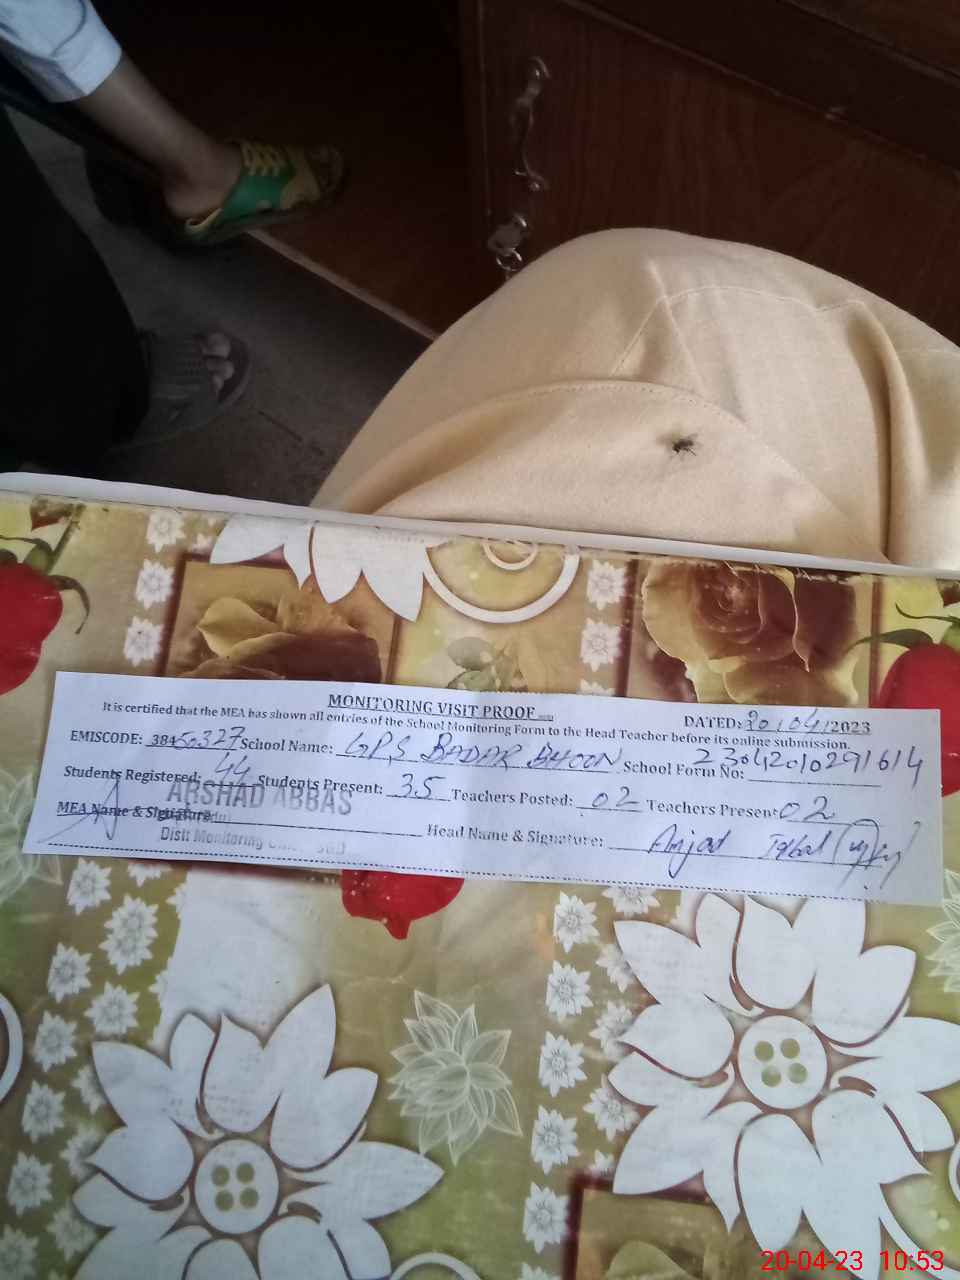 MONITORING VISIT PROOF
DATED: 20/04/2023
It is certified that the MEA has shown all entries of the School Monitoring Form to the Head Teacher before its online submission.
EMISCODE: 38450327 School Name: GPS BADAR BHOON School Form No: 2304201029 1614
Students Registered: 44 Students Present: 35 Teachers Posted: 02 Teachers Present 02
ARSHAD ABBAS
MEA Name & Signature Head Name & Signature: Amjad Iqbal
Distt Monitoring
20-04-23 10:53